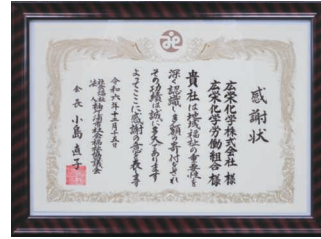 感謝状
広栄化学株式会社 様
広栄化学労働組合 様
貴社は地域福祉の重要性を
深く認識し多額の寄付をされ
その功績は誠に多大であります
よってここに感謝の意を表します
令和六年十二月十五日
社会福祉法人袖ケ浦市社会福祉協議会
会長 小島直子